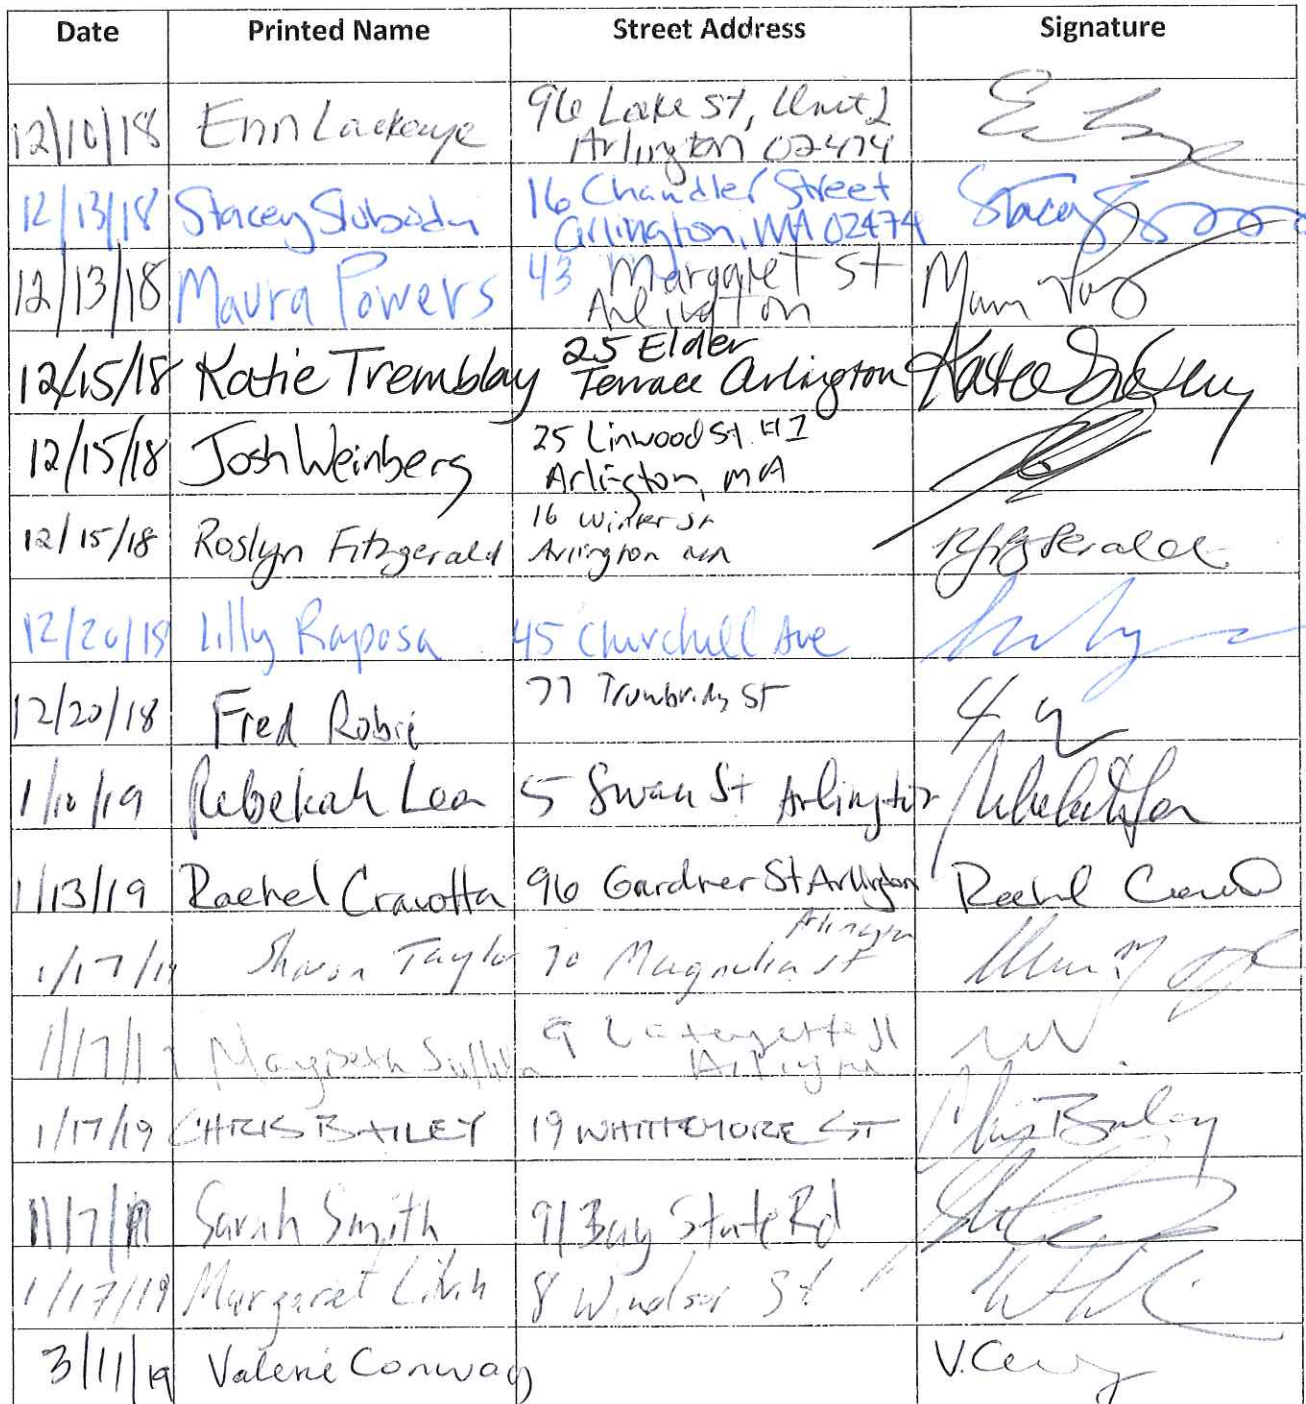 Date Printed Name Street Address Signature
12/10/18 Erin Lackeye 96 Lake St, Unit 2
Arlington 02474
12/13/18 Stacey Sloboda 16 Chandler Street Stacey
Arlington, MA 02474
12/13/18 Maura Powers 43 Margaret St
Arlington
12/15/18 Katie Tremblay 25 Elder Katie
Terrace Arlington
12/15/18 Josh Weinberg 25 Linwood St. #1
Arlington, MA
12/15/18 Roslyn Fitzgerald 16 Winter St
Arlington MA
12/20/18 Lilly Raposa 45 Churchill Ave
12/20/18 Fred 77 St
1/10/19 Rebekah 5 Swan St Arlington
1/13/19 Rachel Cravotta 96 Gardner St Arlington Rachel
Arlington
1/17/19 Sharon Taylor 70 Magnolia St
1/17/19 9 Lafayette St
Arlington
1/17/19 CHRIS BAILEY 19 WHITTEMORE ST Chris Bailey
1/17/19 Sarah Smith 91 Bay State Rd
1/17/19 Margaret 8 Windsor St
3/11/19 Valerie Conway V.